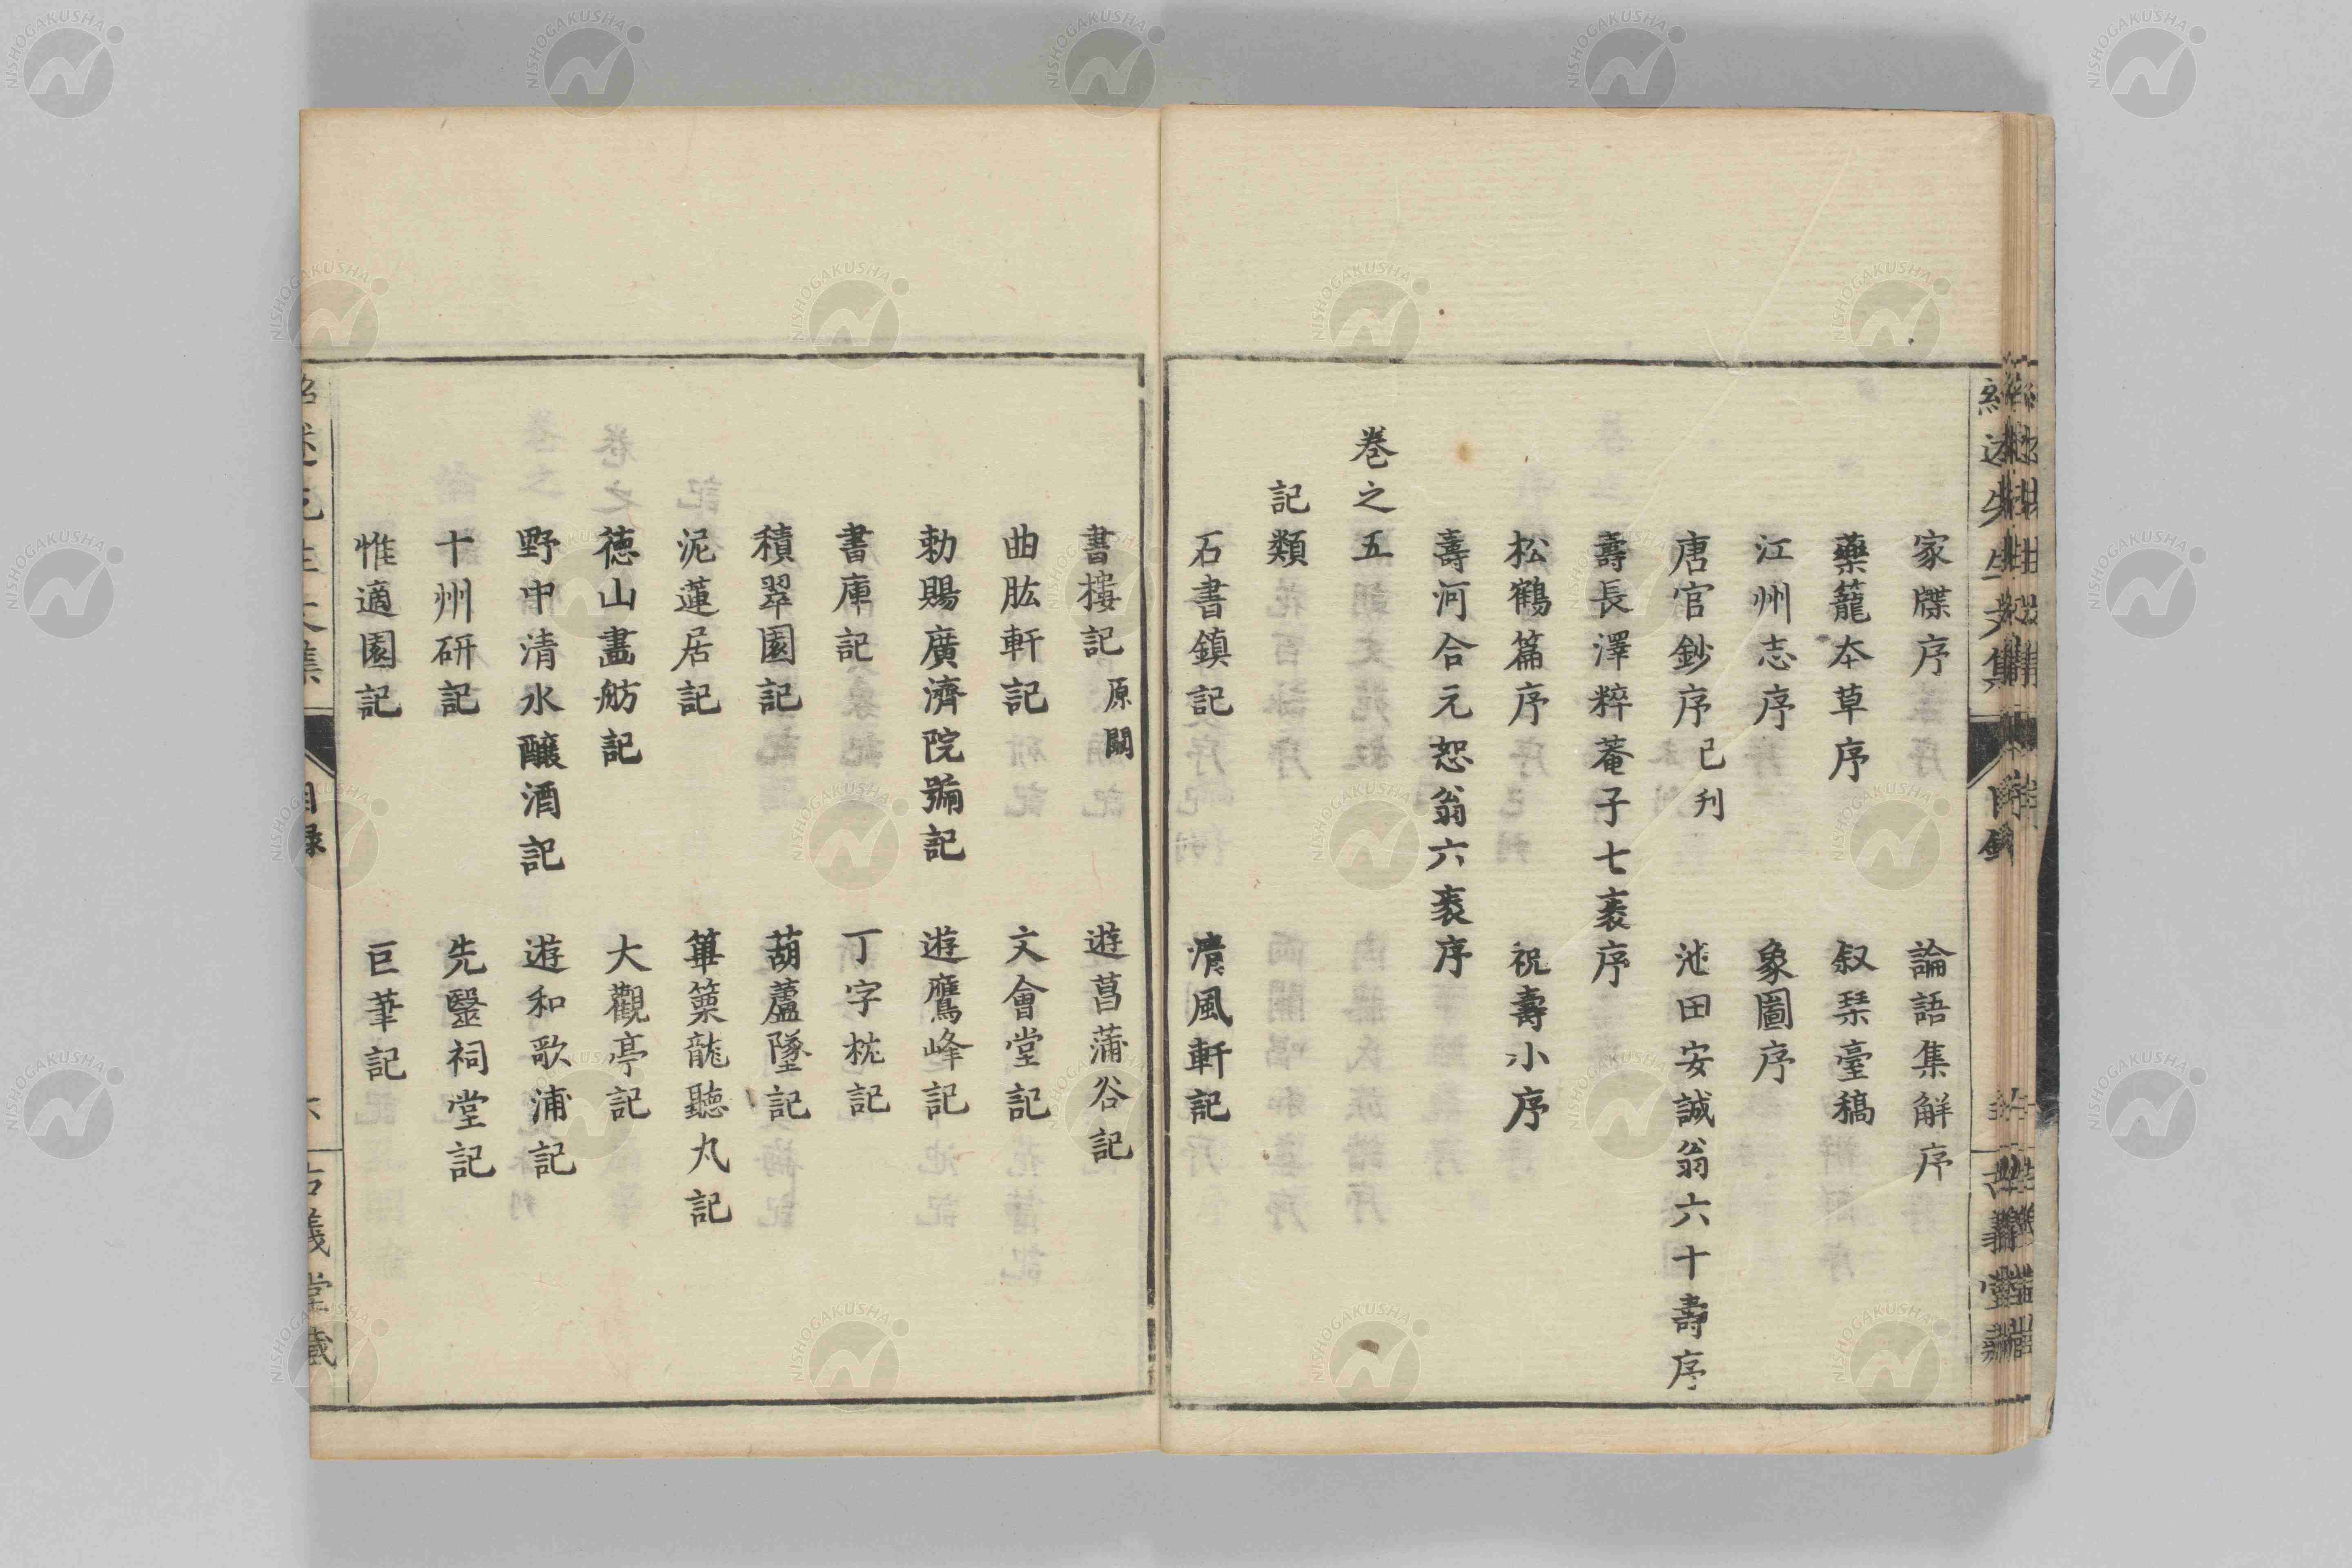 家牒序　論語集解序
藥籠本草序　叙琹臺稿
江州志序　象圖序
唐官鈔序 已刋　池田安誠翁六十壽序
壽長澤粹菴子七袠序
松鶴篇序　祝壽小序
壽河合元恕翁六袠序
巻之五
記類
石書鎮記　濆風軒記
書樓記 原闕　遊菖蒲谷記
曲肱軒記　文會堂記
勅賜廣濟院號記　遊鷹峰記
書庫記　丁字枕記
積翠園記　葫蘆墜記
泥蓮居記　篳篥龍聽丸記
德山畵舫記　大觀亭記
野中清水釀酒記　遊和歌浦記
十州研記　先毉祠堂記
惟適園記　巨筆記
目録
古義堂藏
NISHOGAKUSHA